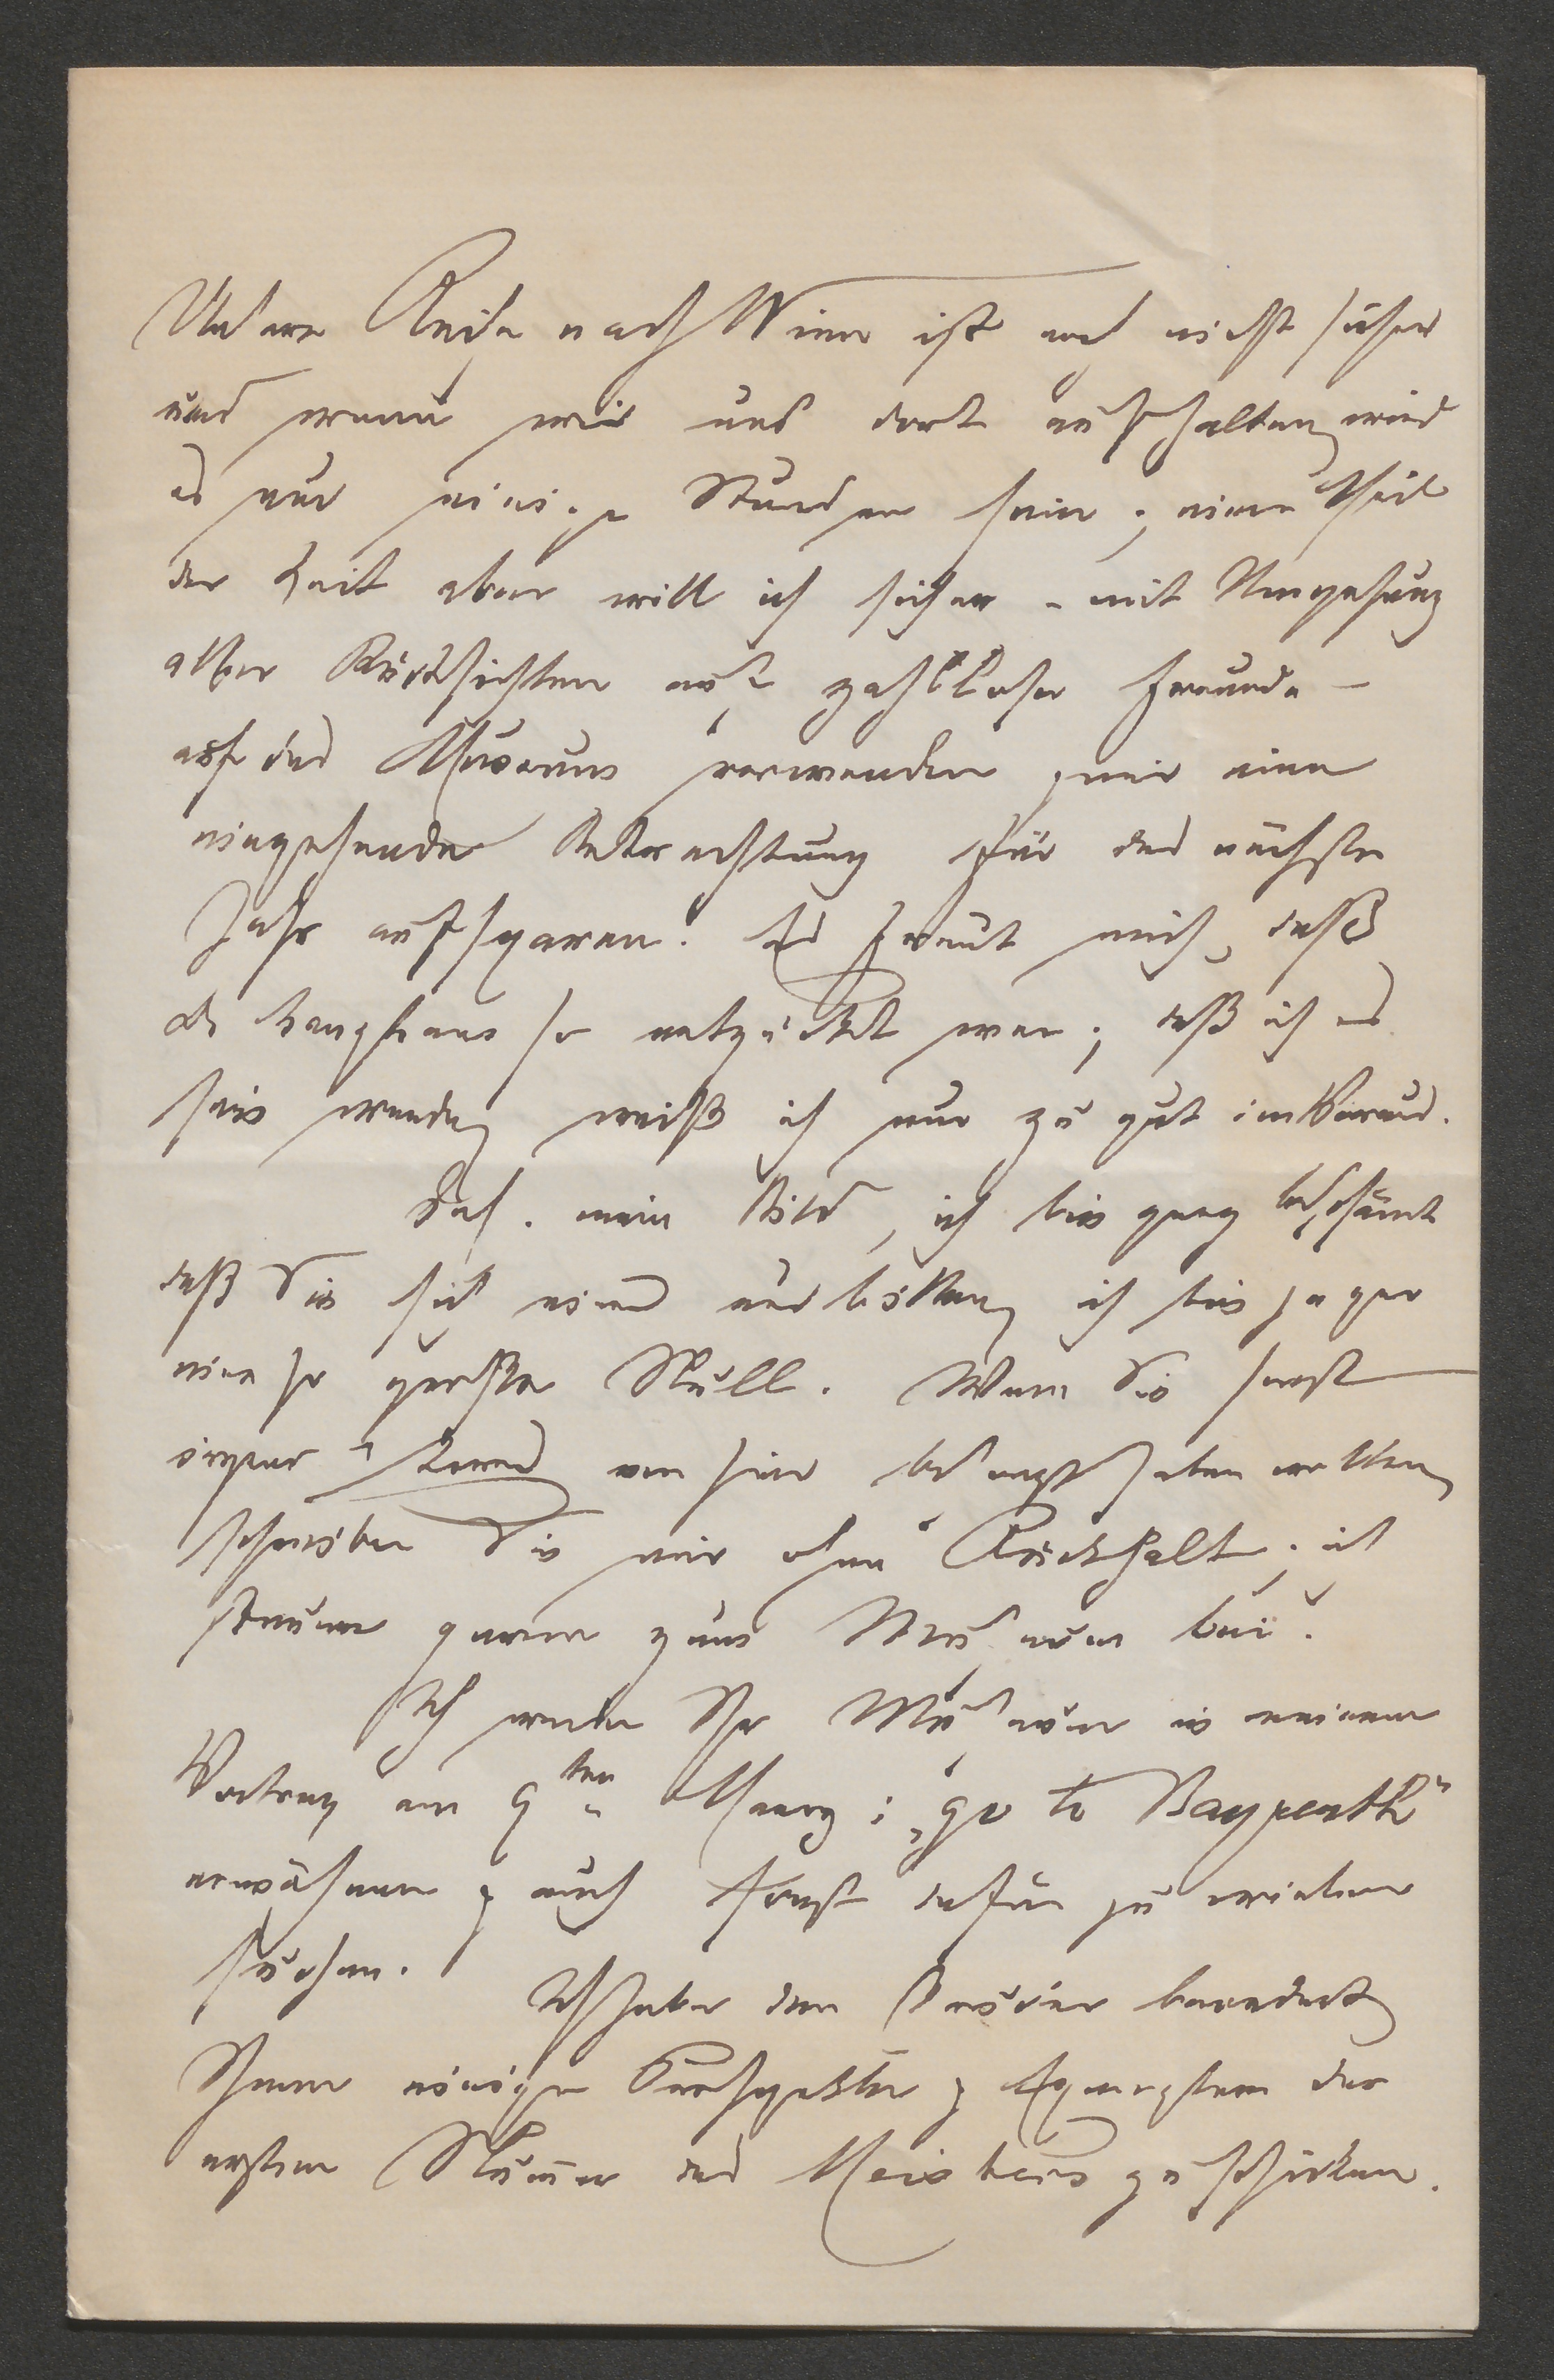 Unsere Reise nach Wien ist noch nicht sicher
und wenn wir uns dort aufhalten wird
es nur einige Stunden sein; einen Theil
der Zeit aber will ich sicher – mit Umgehung
aller Rücksichten auf zahllose Freunde –
auf das Museum verwenden & mir eine
eingehende Betrachtung für das nächste
Jahr aufsparen. Es freut mich, dass
so entzückt war; daß ich es
sein werde, weiß ich nur zu gut im Voraus.
Doch mein Bild, ich bin ganz beschämt
daß Sie sich eines ausbitten, ich bin ja gar
eine so große Null. Wenn Sie sonst
irgend etwas von hier besorgt haben wollen,
schreiben Sie mir ohne Rückhalt; ich
steuere gerne zum Museum bei.
Ich werde Ihr Museum in meinem
Vortrag am 9ten Maerz: „go to Bayreuth"
erwähnen & auch sonst dafür zu wirken
suchen. Ich habe den beredet,
Ihnen einige Prospekte & Exemplare der
ersten Numer des Meisters zu schicken.